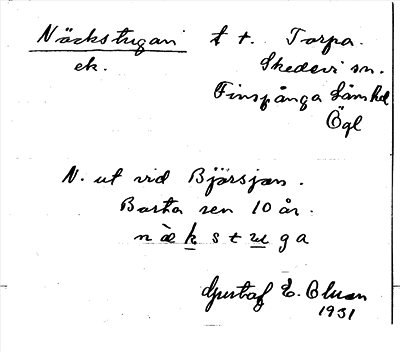 Näckstugan t t. Torpa.
ek. Skedevi sn.
Finspånga läns hd
Ögl
N. ut vid Bjärsjön.
Borta sen 10 år.
n æ̀ k s t u g a
Gustaf E. Olsson
1931